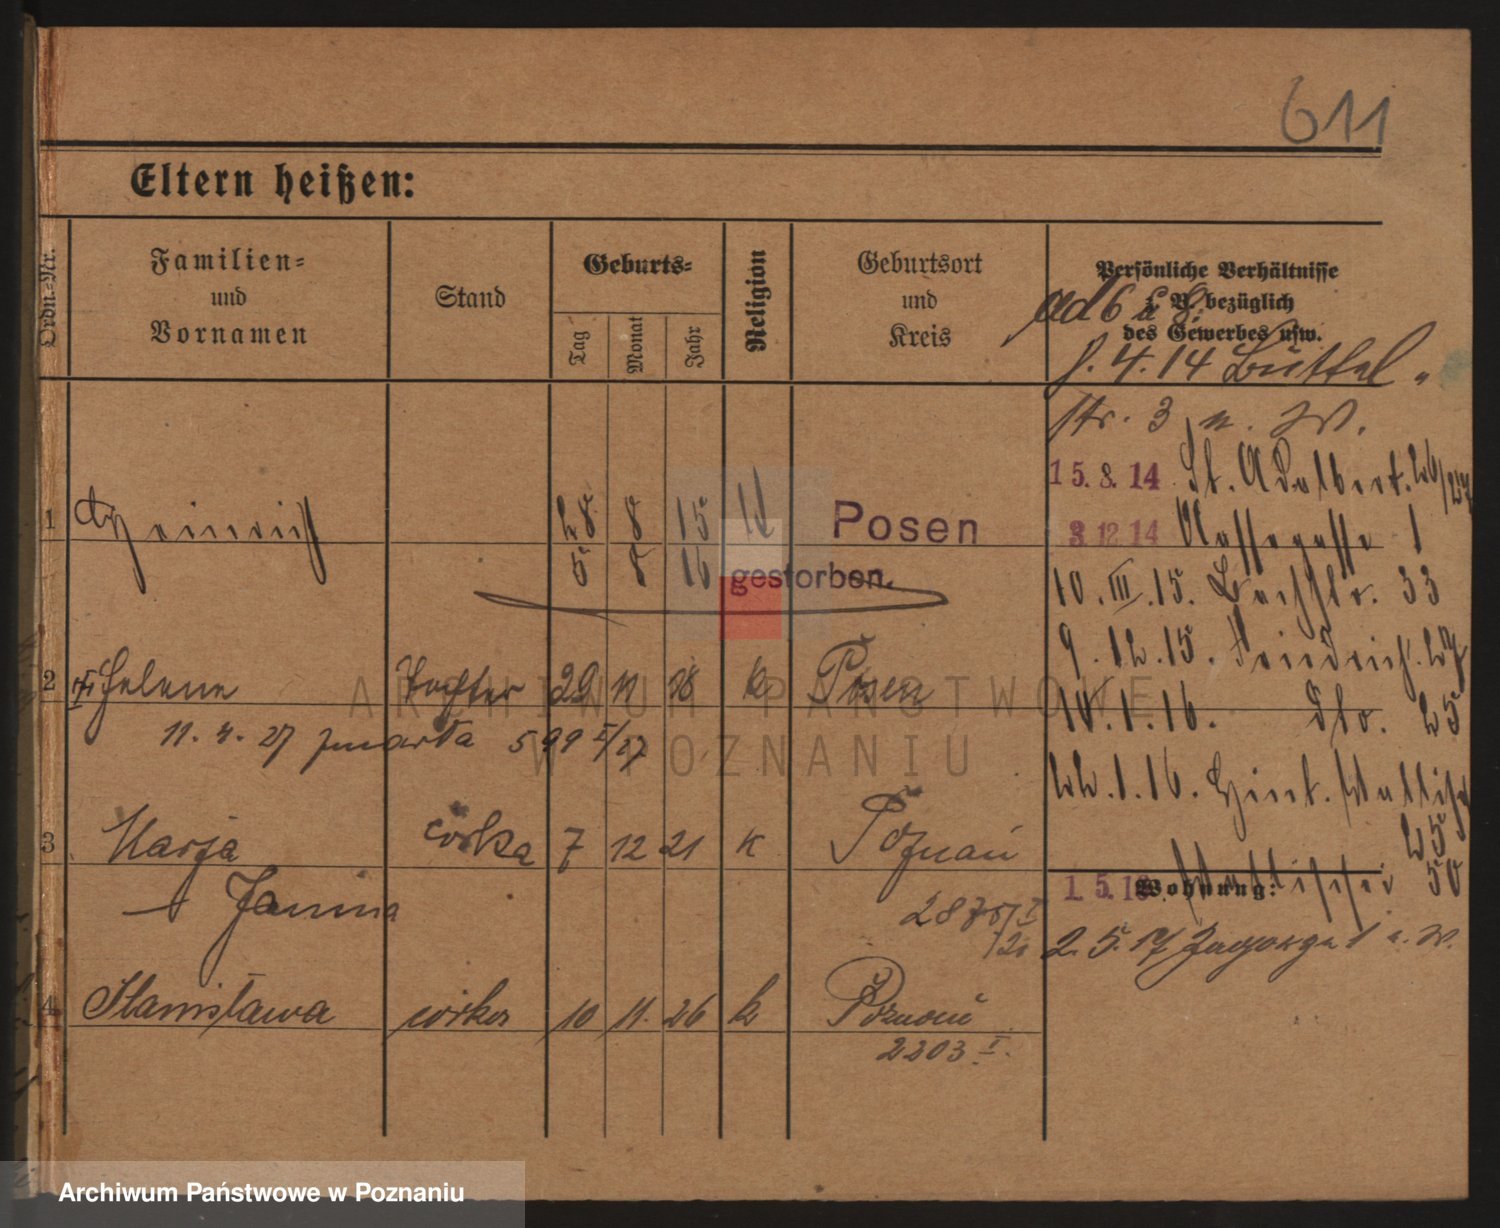 611
Eltern heißen:
Ordn.-Nr.
Familien-
und
Vornamen
Stand
Geburts-
Tag
Monat
Jahr
Religion
Geburtsort
und
Kreis
Persönliche Verhältnisse
z. B. bezüglich
des Gewerbes usw.
ad 6 u 8.
4.14 Büttel "
str. 3 n. W.
15.8.14 St. Adalbert. 26/27
3.12.14 1
1 Heinrich 28 8 15 K Posen
5 8 16 gestorben.
10.III.15. 33
9.12.15. Friedrich. 27
10.1.16. dto. 25
2 Helene Tochter 29 11 18 k Posen
11.4.27 zmarła 599 I/27
22.1.16. Hint. Wallisch
25
3 Marja córka 7 12 21 K Poznań
Janina
2875/I
/21
1.5.16 Wallischei 50
Wohnung:
2.5.17 Zagorze 1 n. W.
4 Stanisława córka 10 11. 26 k Poznań
2203 I.
ARCHIWUM PAŃSTWOWE
W POZNANIU
Archiwum Państwowe w Poznaniu